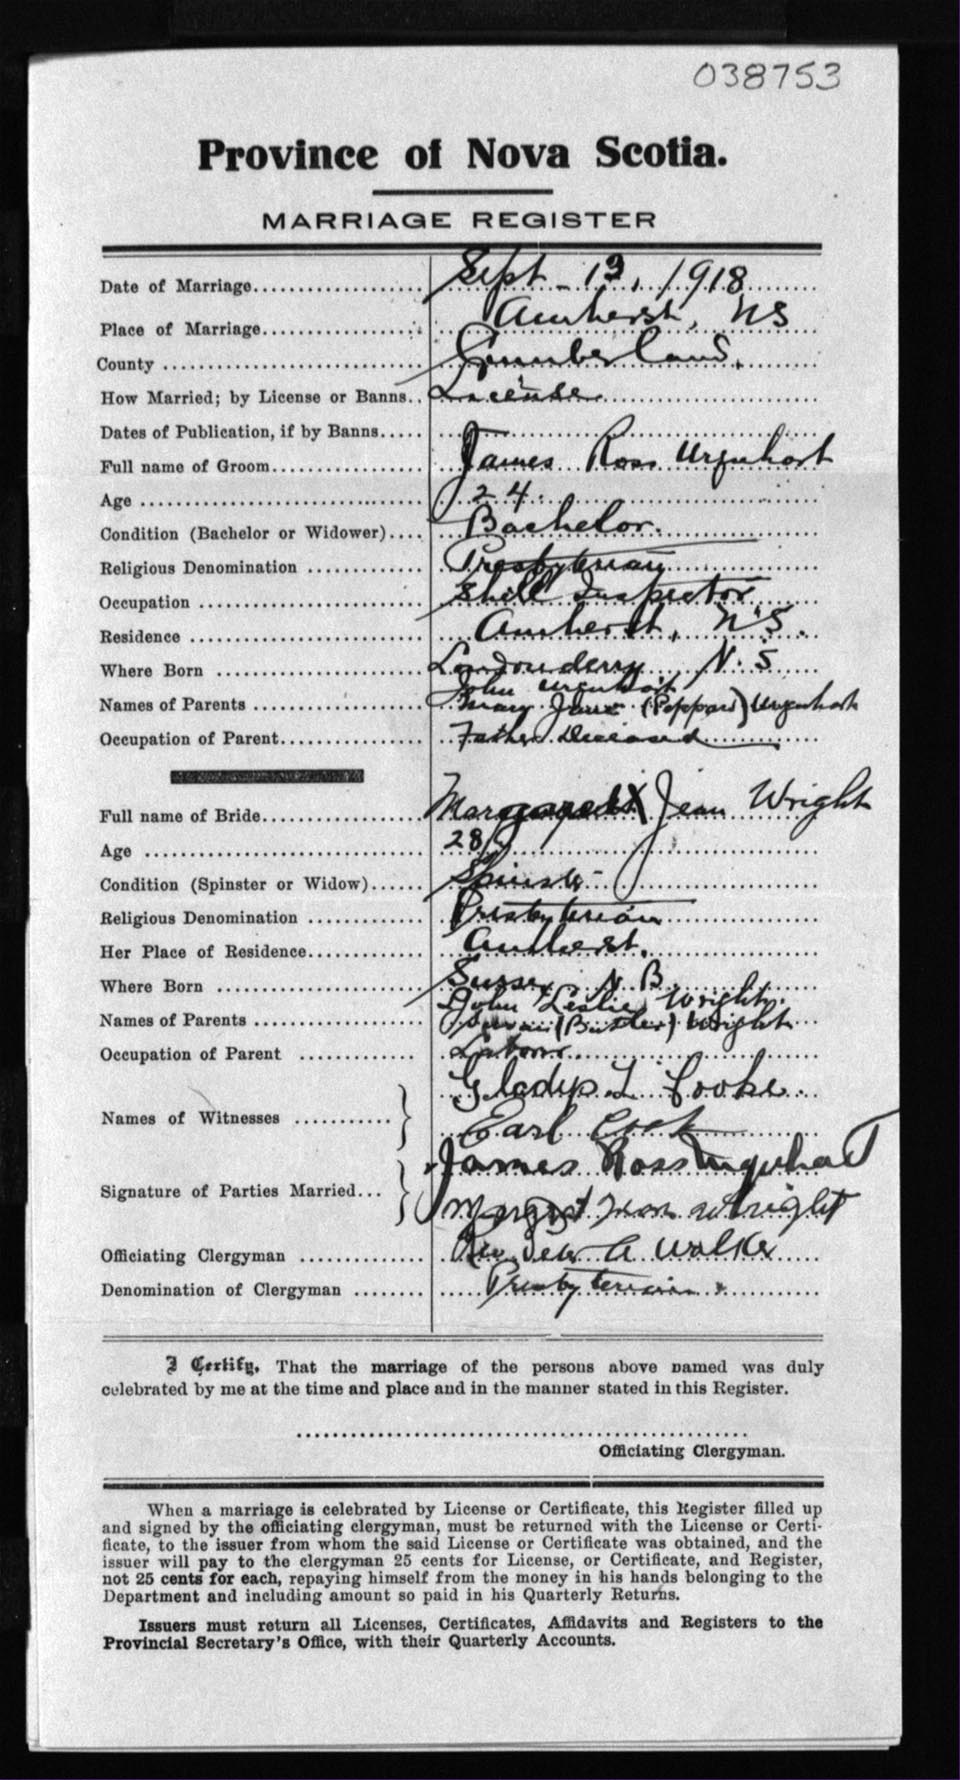 038753
Province of Nova Scotia.
MARRIAGE REGISTER
Date of Marriage.................... Sept - 13, 1918
Place of Marriage................... Amherst, NS
County ............................. Cumberland.
How Married; by License or Banns.. License
Dates of Publication, if by Banns.....
Full name of Groom.................. James Ross Urquhart
Age ................................ 24.
Condition (Bachelor or Widower).... Bachelor.
Religious Denomination ............ Presbyterian
Occupation ......................... Shell Inspector
Residence .......................... Amherst, N.S.
Where Born ........................ Londonderry N.S
John Urquhart
Names of Parents .................. Mary Jane (Peppard) Urquhart
Occupation of Parent................ Father Deceased
Full name of Bride.................. Jean Wright
Age ................................ 28
Condition (Spinster or Widow)...... Spinster
Religious Denomination ............ Presbyterian
Her Place of Residence.............. Amherst.
Where Born ........................ Sussex, N B
John Leslie Wright.
Names of Parents .................. (Butler) Wright
Occupation of Parent ............
Gladys L Cooke
Names of Witnesses ...........
Earl Cook
James Ross Urquhart
Signature of Parties Married...
Margret Jean Wright
Officiating Clergyman ............ Rev. A Walker
Denomination of Clergyman ........ Presbyterian
I Certify, That the marriage of the persons above named was duly
celebrated by me at the time and place and in the manner stated in this Register.
Officiating Clergyman.
When a marriage is celebrated by License or Certificate, this Register filled up
and signed by the officiating clergyman, must be returned with the License or Certi-
ficate, to the issuer from whom the said License or Certificate was obtained, and the
issuer will pay to the clergyman 25 cents for License, or Certificate, and Register,
not 25 cents for each, repaying himself from the money in his hands belonging to the
Department and including amount so paid in his Quarterly Returns.
Issuers must return all Licenses, Certificates, Affidavits and Registers to the
Provincial Secretary's Office, with their Quarterly Accounts.